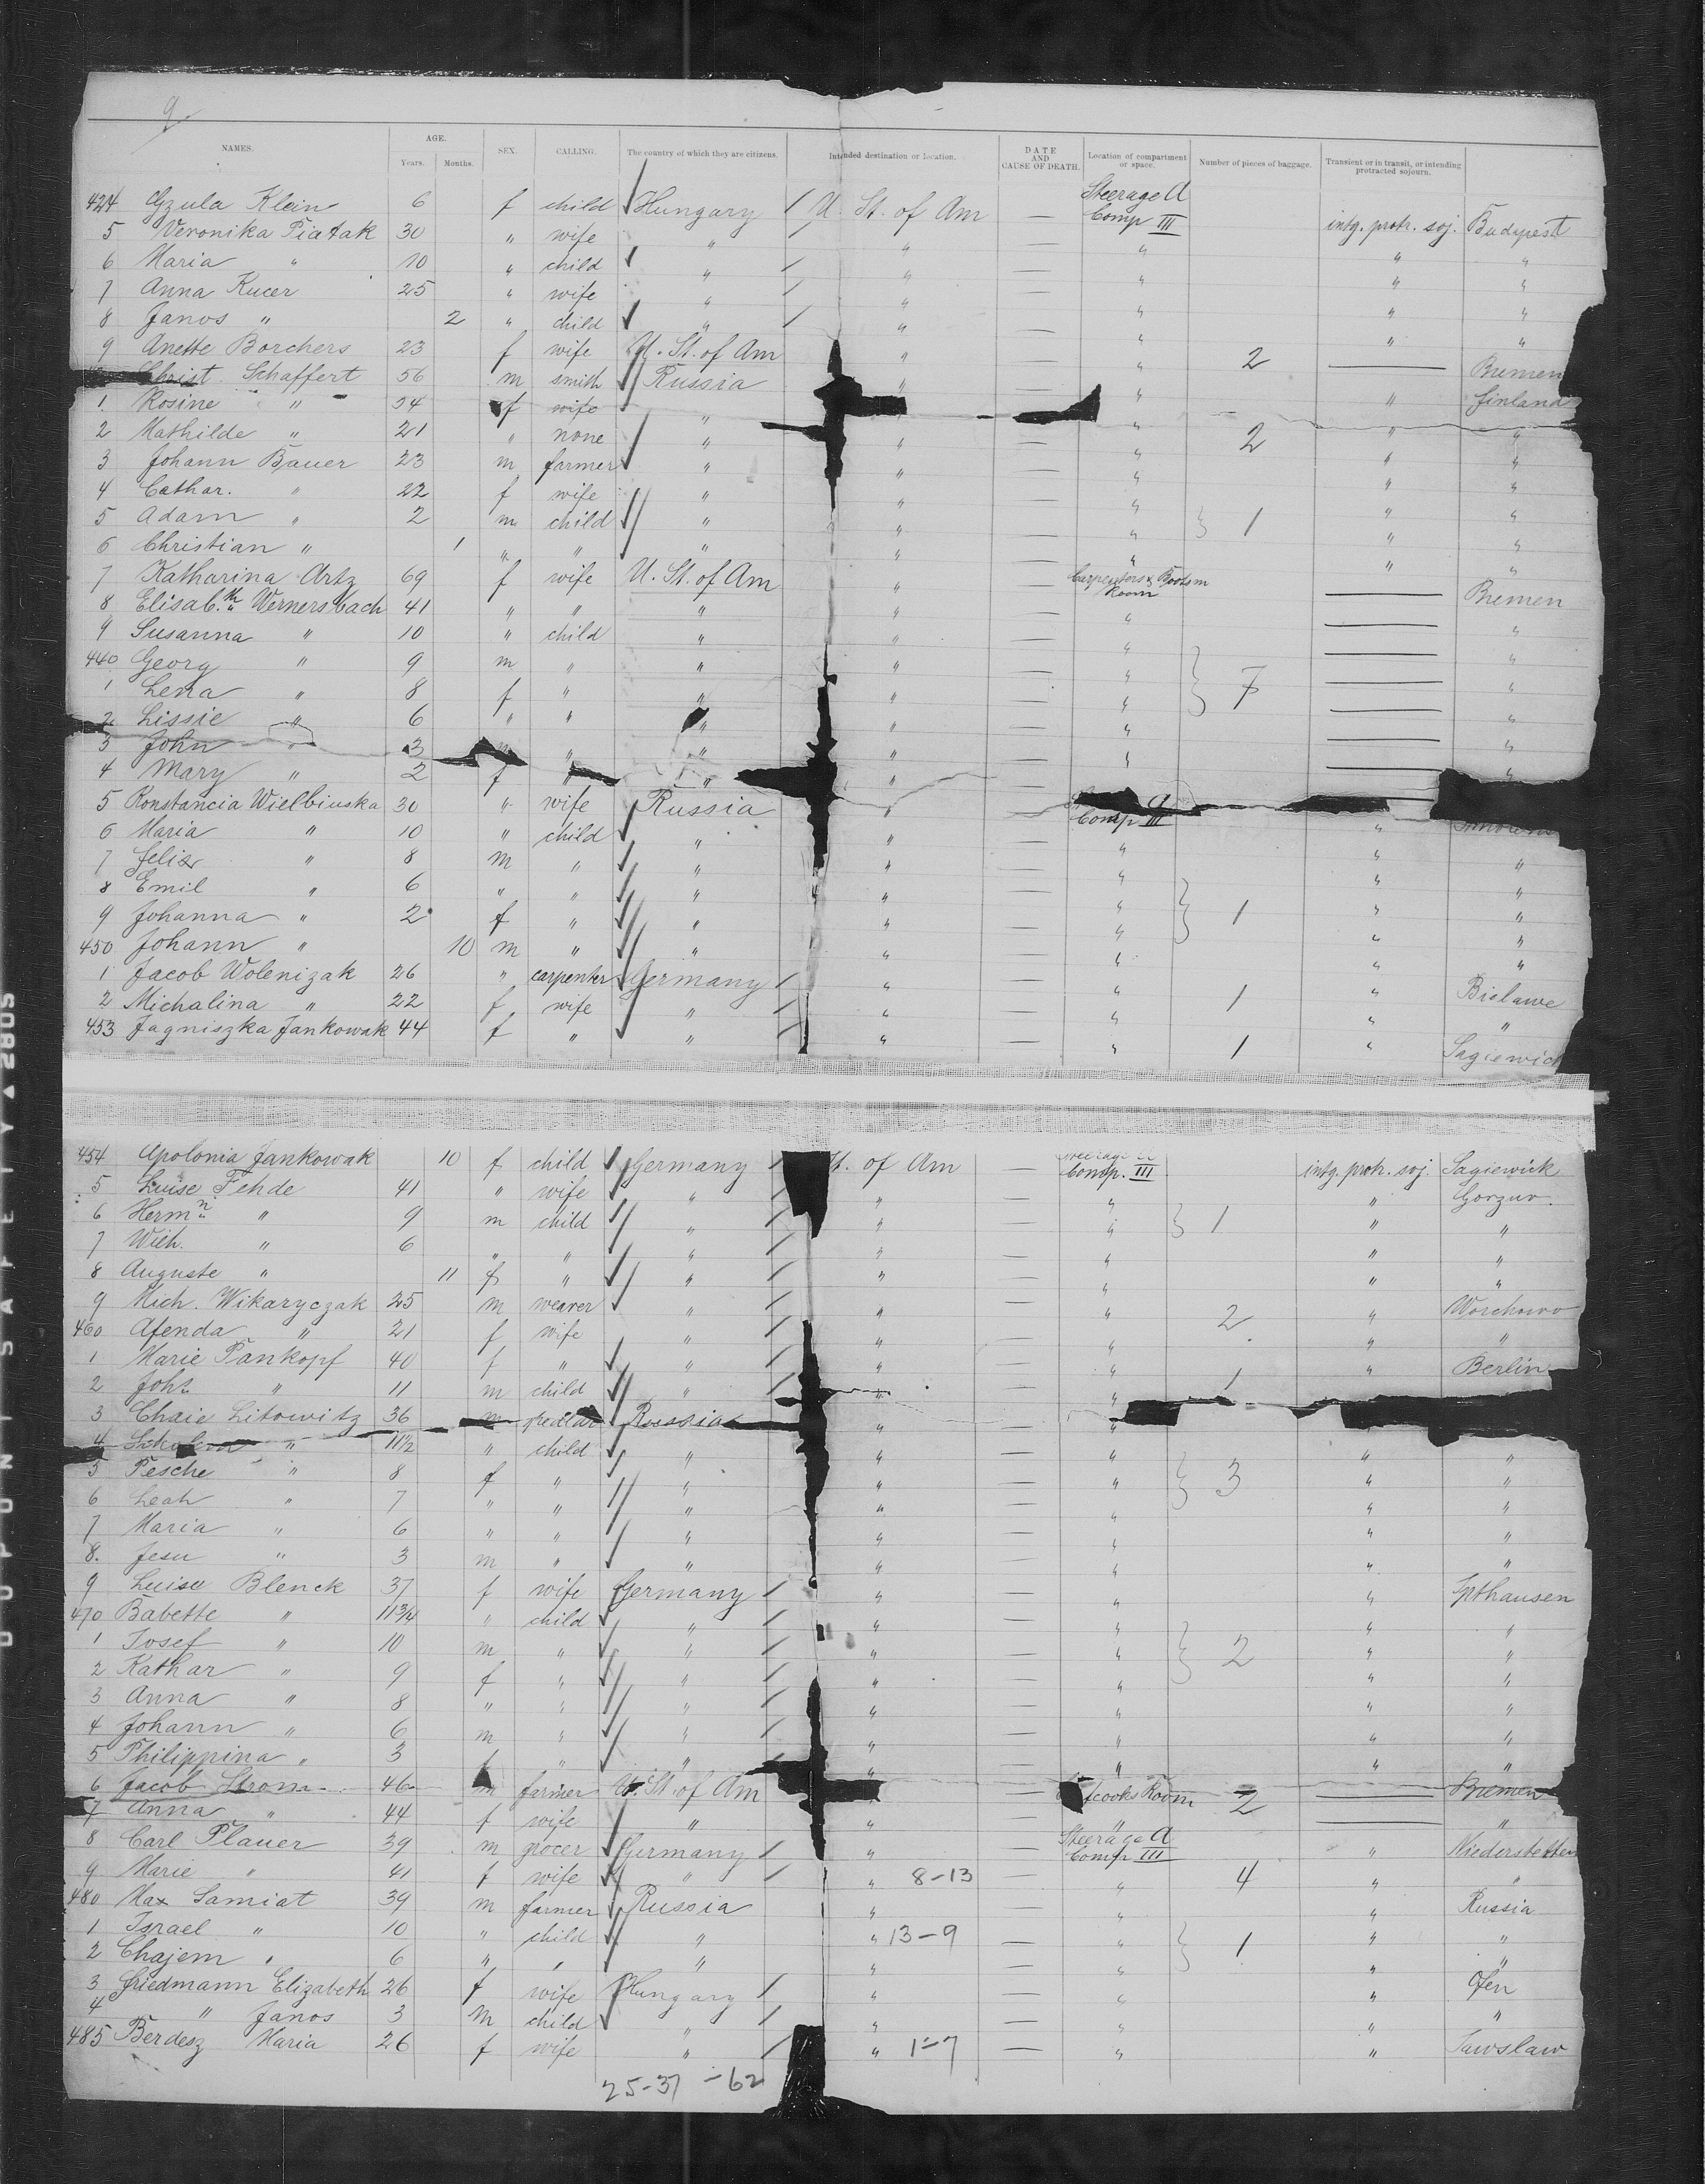 9.
NAMES. AGE. Years. Months. SEX. CALLING. The country of which they are citizens. Intended destination or location. DATE AND CAUSE OF DEATH. Location of compartment or space. Number of pieces of baggage. Transient or in transit, or intending protracted sojourn.
424 Gzula Klein 6 f child Hungary U. St. of Am — Steerage A Comp III intg. protr. soj. Budapest
5 Veronika Piatak 30 " wife " " — " " "
6 Maria " 10 " child " " — " " "
7 Anna Kucer 25 " wife " " — " " "
8 Janos " 2 " child " " — " " "
9 Anette Borchers 23 f wife U. St. of Am " — " 2 — Bremen
Christ Schaffert 56 m smith Russia " — " " Finland
1. Rosine " 54 f wife " " " "
2 Mathilde " 21 " none " " — " 2 " "
3 Johann Bauer 23 m farmer " " — " " "
4 Cathar. " 22 f wife " " — " " "
5 Adam " 2 m child " " — " 1 " "
6 Christian " 1 " " " " — " " "
7 Katharina Artz 69 f wife U. St. of Am " — Carpenters & Bootsm Room — Bremen
8 Elisab.th Wernersbach 41 " " " " — " — "
9 Susanna " 10 " child " " — " — "
440 Georg " 9 m " " " — " — "
1 Lena " 8 f " " " — " 7 — "
2 Lissie " 6 " " " " — " — "
3 John 3 " " " — " — "
4 Mary " 2 f " " " — "
5 Konstancia Wielbinska 30 " wife Russia " — A Comp III
6 Maria " 10 " child " " — " " "
7 Felix " 8 m " " " — " " "
8 Emil " 6 " " " " — " " "
9 Johanna " 2 f " " " — " 1 " "
450 Johann " 10 m " " " — " " "
1 Jacob Wolenizak 26 " carpenter Germany " — " " Bielawe
2 Michalina " 22 f wife " " — " 1 " "
453 Jagniszka Jankowak 44 f " " " — " 1 " Sagiewick
454 Apolonia Jankowak 10 f child Germany St. of Am — Comp. III intg. protr. soj. Sagiewick
5 Luise Fehde 41 " wife " " — " " Gorzuv.
6 Hermn " 9 m child " " — " 1 " "
7 Wilh. " 6 " " " " — " " "
8 Auguste " 11 f " " " — " " "
9 Mich. Wikaryczak 25 m weaver " " — " 2 " Worchowo
460 Afenda " 21 f wife " " — " " "
1 Marie Pankopf 40 f " " " — " 1 " Berlin
2 Joh. " 11 m child " " — "
3 Chaie Litowitz 36 m pedlar Russia " — "
4 " 11½ " child " " — " " "
5 Pesche " 8 f " " " — " 3 " "
6 Leah " 7 " " " " — " " "
7 Maria " 6 " " " " — " " "
8. Jesu " 3 m " " " — " " "
9 Luise Blenck 37 f wife Germany " — " " Ipthausen
470 Babette " 11¾ " child " " — " " "
1 Josef " 10 m " " " — " 2 " "
2 Kathar " 9 f " " " — " " "
3 Anna " 8 " " " " — " " "
4 Johann " 6 m " " " — " " "
5 Philippina " 3 f " " " — " " "
6 Jacob Strom 46 m farmer U. St. of Am — cooks Room 2 — Bremen
7 Anna " 44 f wife " " — " — "
8 Carl Plauer 39 m grocer Germany " — Steerage A Comp III " Niederstetten
9 Marie " 41 f wife " " 8-13 — " 4 " "
480 Max Samiat 39 m farmer Russia " — " " Russia
1 Israel " 10 " child " " 13-9 — " 1 " "
2 Chajem " 6 " " " " — " " "
3 Friedmann Elizabeth 26 f wife Hungary " — " " Ofen
4 " Janos 3 m child " " — " " "
485 Berdesz Maria 26 f wife " " 1-7 — " " Tawslaw
25-37 -62
DUPONT SAFETY ▲ 280S